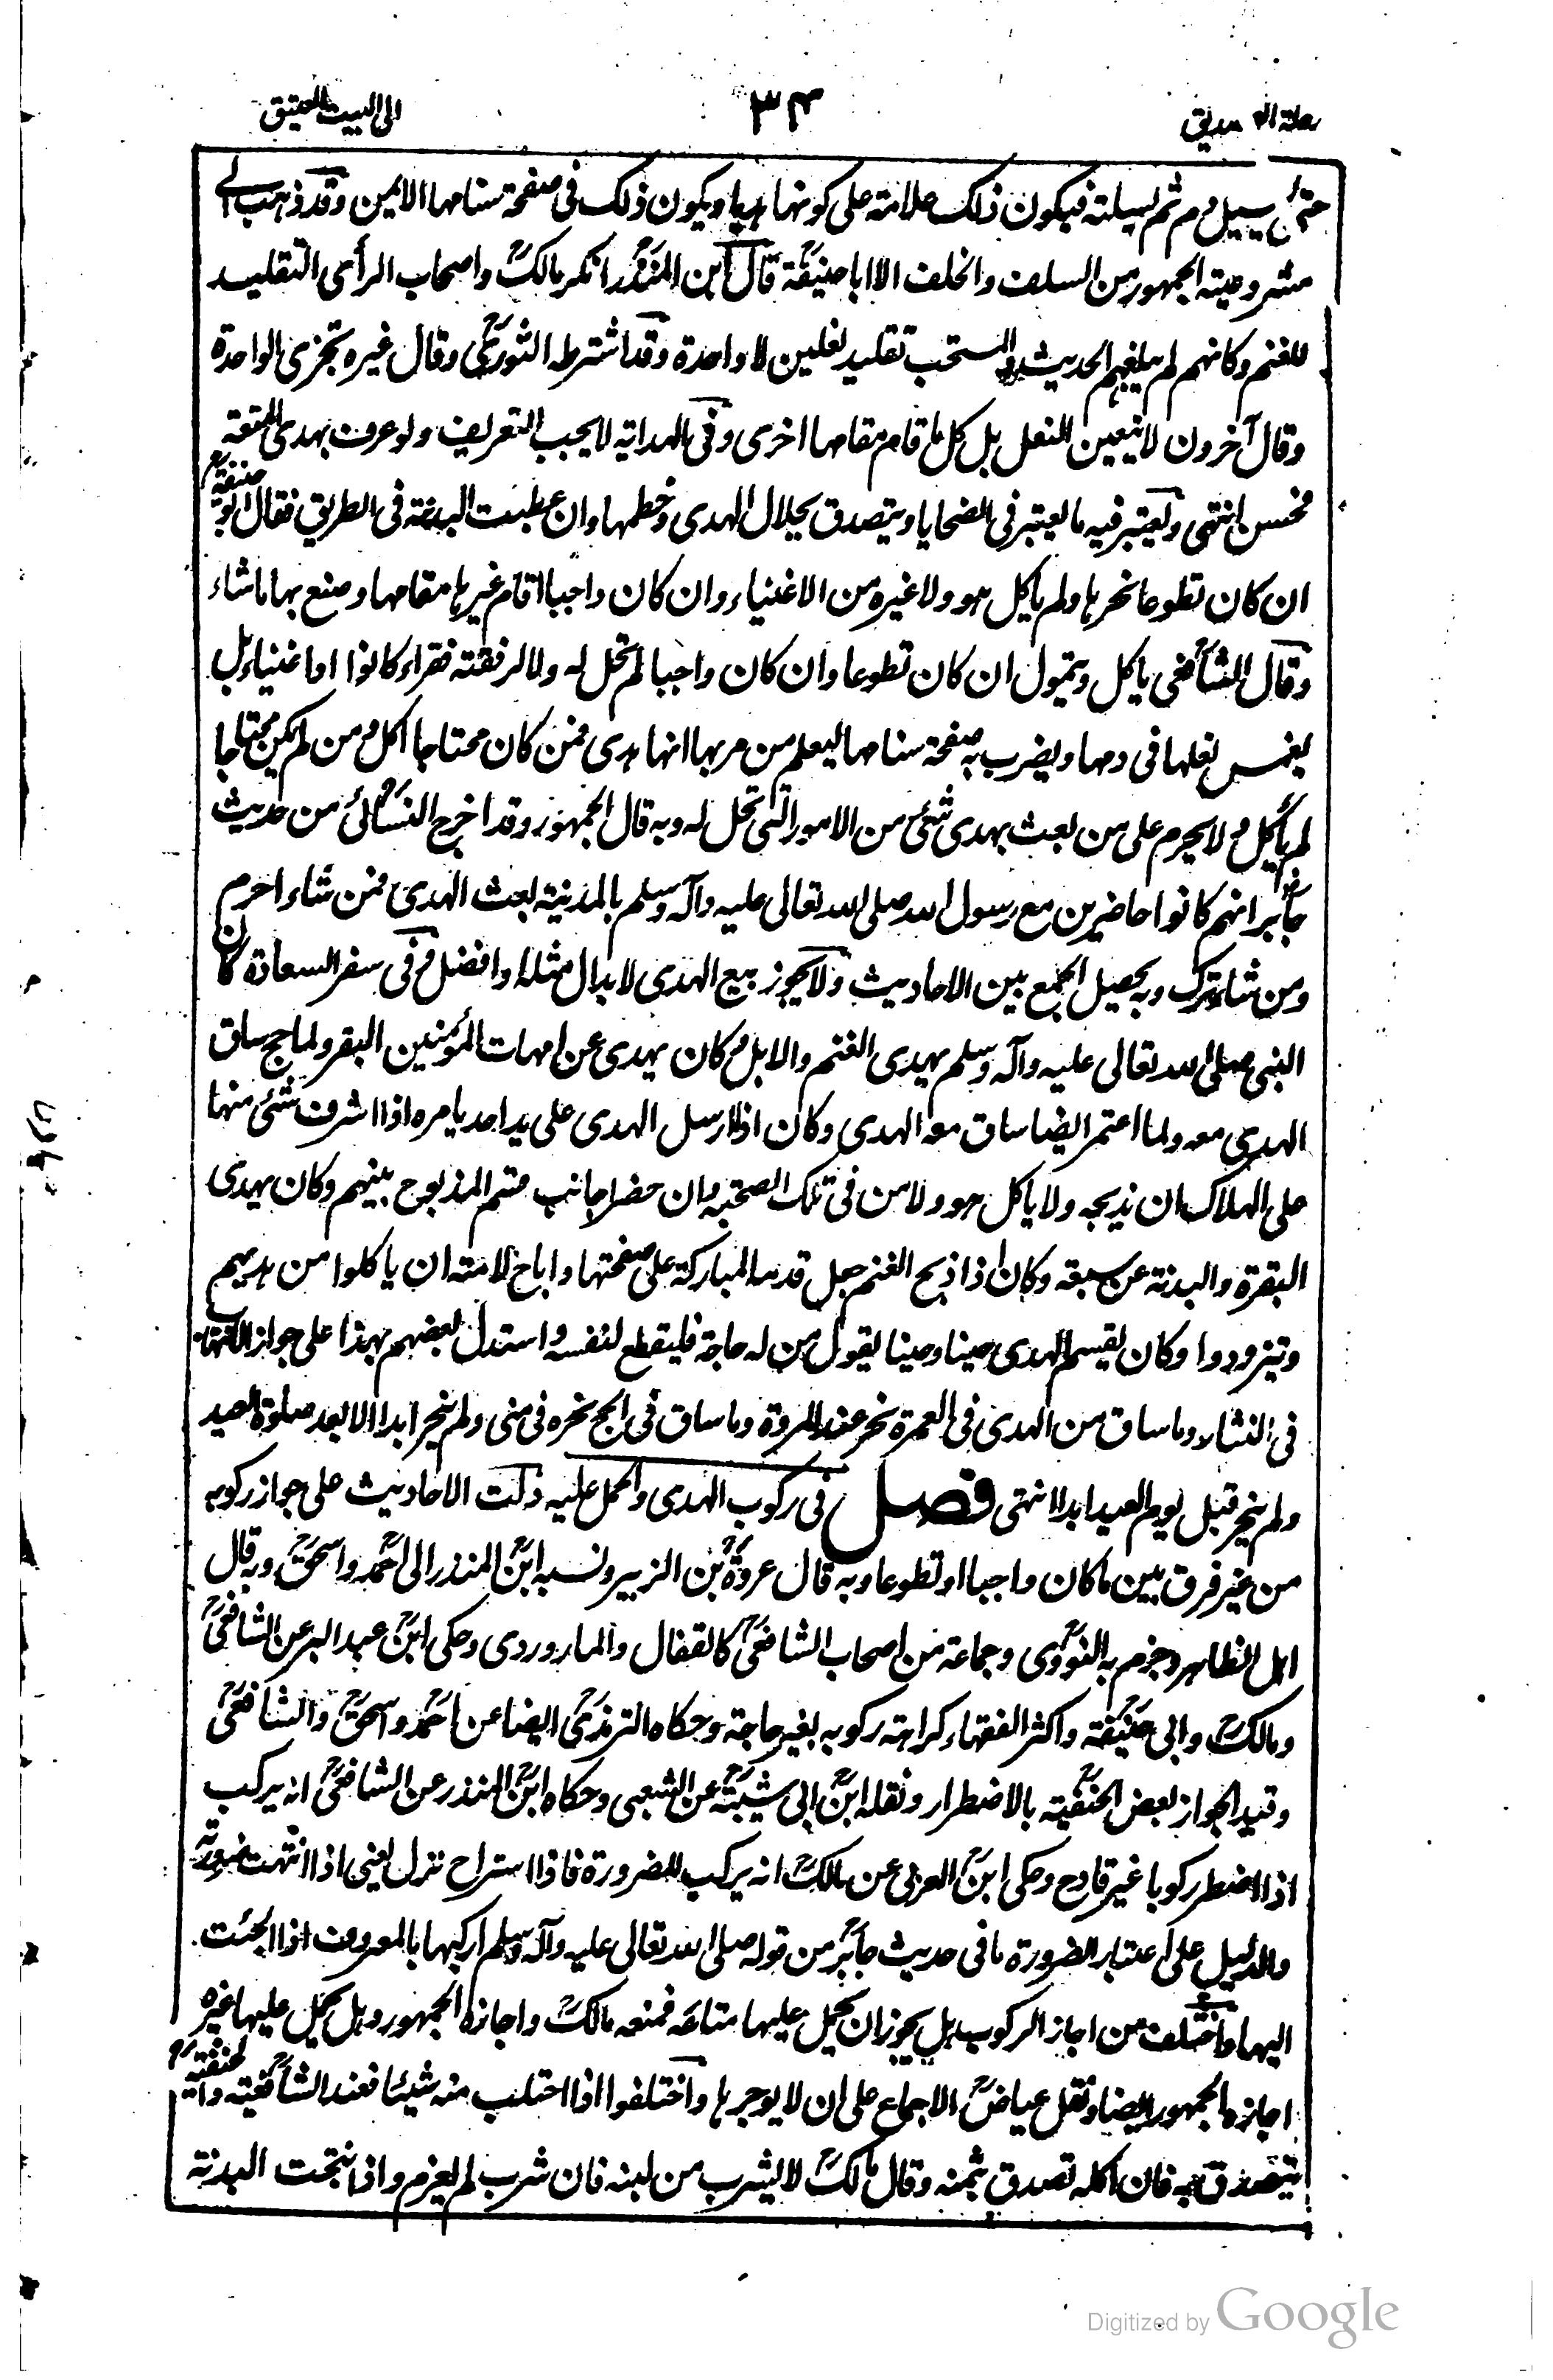 رحلة الصديق
٣٤
الى البيت العتيق
حتى يسيل دم ثم يسلته فيكون ذلك علامة على كونها هديا ويكون ذلك فى صفحة سنامها الايمن وقد ذهب الى
مشروعيته الجمهور من السلف والخلف الا ابا حنيفة قال ابن المنذر انكر مالك واصحاب الرأى التقليد
للغنم وكانهم لم يبلغهم الحديث والمستحب تقليد نعلين لا واحدة وقد اشترطه الثورى وقال غيره تجزى الواحدة
وقال آخرون لا يتعين النعل بل كل ما قام مقامها اخرى وفى الهداية لا يجب التعريف ولو عرف بهدى المتعة
فحسن انتهى ويعتبر فيه ما يعتبر فى الضحايا ويتصدق بجلال الهدى وخطمها وان عطبت البدنة فى الطريق فقال ابو حنيفة
ان كان تطوعا نحرها ولم ياكل هو ولا غيره من الاغنياء وان كان واجبا اقام غيرها مقامها وصنع بها ما شاء
وقال الشافعى ياكل ويتمول ان كان تطوعا وان كان واجبا لم تحل له ولا لرفقته فقراء كانوا او اغنياء بل
يغمس نعلها فى دمها ويضرب به صفحة سنامها ليعلم من مر بها انها هدى فمن كان محتاجا اكل ومن لم يكن محتاجا
لم يأكل و لا يحرم على من بعث بهدى شئ من الامور التى تحل له وبه قال الجمهور وقد اخرج النسائى من حديث
جابر انهم كانوا حاضرين مع رسول الله صلى الله تعالى عليه وآله وسلم بالمدينة بعث الهدى فمن شاء احرم
ومن شاء ترك وبه يحصل الجمع بين الاحاديث ولا يجوز بيع الهدى لابدال مثله او افضل و فى سفر السعادة كان
النبى صلى الله تعالى عليه وآله وسلم يهدى الغنم والابل و كان يهدى عن امهات المؤمنين البقر ولما حج ساق
الهدى معه ولما اعتمر ايضا ساق معه الهدى وكان اذا ارسل الهدى على يد احد يامره اذا اشرف شئ منها
على الهلاك ان يذبحه ولا ياكل هو ولا من فى تلك الصحبة وان حضر اجانب قسم المذبوح بينهم وكان يهدى
البقرة والبدنة عن سبعة وكان اذا ذبح الغنم جعل قدمه المباركة على صفحتها واباح لامته ان ياكلوا من هديهم
ويتزودوا وكان يقسم الهدى حينا وحينا يقول من له حاجة فليقطع لنفسه واستدل بعضهم بهذا على جواز الانتهاب
فى النثار وما ساق من الهدى فى العمرة نحر عند المروة وما ساق فى الحج نحره فى منى ولم ينحر ابدا الا بعد صلوة العيد
ولم ينحر قبل يوم العيد ابدا انتهى فصل فى ركوب الهدى والحمل عليه دلت الاحاديث على جواز ركوبه
من غير فرق بين ما كان واجبا او تطوعا وبه قال عروة بن الزبير ونسبه ابن المنذر الى احمد واسحق وبه قال
اهل الظاهر وجزم به النووى وجماعة من اصحاب الشافعى كالقفال والماروردى وحكى ابن عبد البر عن الشافعى
ومالك وابى حنيفة واكثر الفقهاء كراهة ركوبه بغير حاجة وحكاه الترمذى ايضا عن احمد واسحق والشافعى
وقيد الجواز بعض الحنفية بالاضطرار ونقله ابن ابى شيبة عن الشعبى وحكاه ابن المنذر عن الشافعى انه يركب
اذا اضطر ركوبا غير قادح وحكى ابن العربى عن مالك انه يركب للضرورة فاذا استراح نزل يعنى اذا انتهت ضرورته
والدليل على اعتبار الضرورة ما فى حديث جابر من قوله صلى الله تعالى عليه وآله وسلم اركبها بالمعروف اذا الجئت
اليها واختلف من اجاز الركوب هل يجوز ان يحمل عليها متاعه فمنعه مالك واجازه الجمهور وهل يحمل عليها غيره
اجازه الجمهور ايضا ونقل عياض الاجماع على ان لا يوجرها واختلفوا اذا احتلب منه شيئا فعند الشافعية والحنفية
يتصدق به فان اكله تصدق بثمنه وقال مالك لا يشرب من لبنه فان شرب لم يغرم واذا نتجت البدنة
Digitized by Google